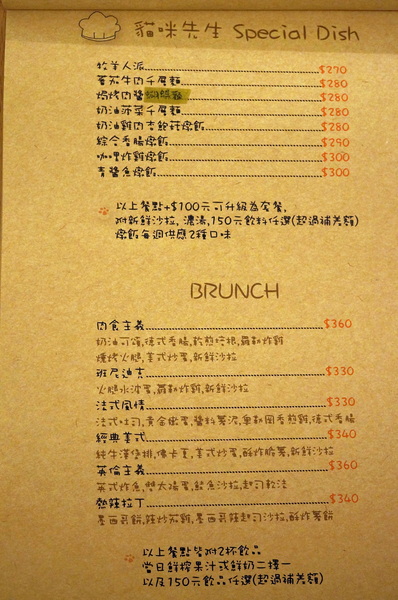 貓咪先生 Special Dish
牧羊人派 $270
蕃茄牛肉千層麵 $280
焗烤肉醬蝴蝶麵 $280
奶油菠菜千層麵 $280
奶油雞肉杏鮑菇燉飯 $280
綜合香腸燉飯 $290
咖哩炸雞燉飯 $300
青醬魚燉飯 $300
以上餐點+$100元可升級為套餐,
附新鮮沙拉, 濃湯,150元飲料任選(超過補差額)
燉飯每週供應2種口味
BRUNCH
肉食主義 $360
奶油可頌,德式香腸,軟煎培根,羅勒炸雞
煙烤火腿,美式炒蛋,新鮮沙拉
班尼迪克 $330
火腿水波蛋,羅勒炸雞,新鮮沙拉
法式風情 $330
法式吐司,黃金嫩蛋,醬料薯泥,奧勒岡香煎雞,德式香腸
經典美式 $340
純牛漢堡排,佛卡夏,美式炒蛋,酥炸脆薯,新鮮沙拉
英倫主義 $360
英式炸魚,雙太陽蛋,鮪魚沙拉,起司軟法
熱辣拉丁 $340
墨西哥餅,辣炒茄雞,墨西哥辣起司沙拉,酥炸薯餅
以上餐點皆附2杯飲品
當日鮮搾果汁或鮮奶二擇一
以及150元飲品任選(超過補差額)